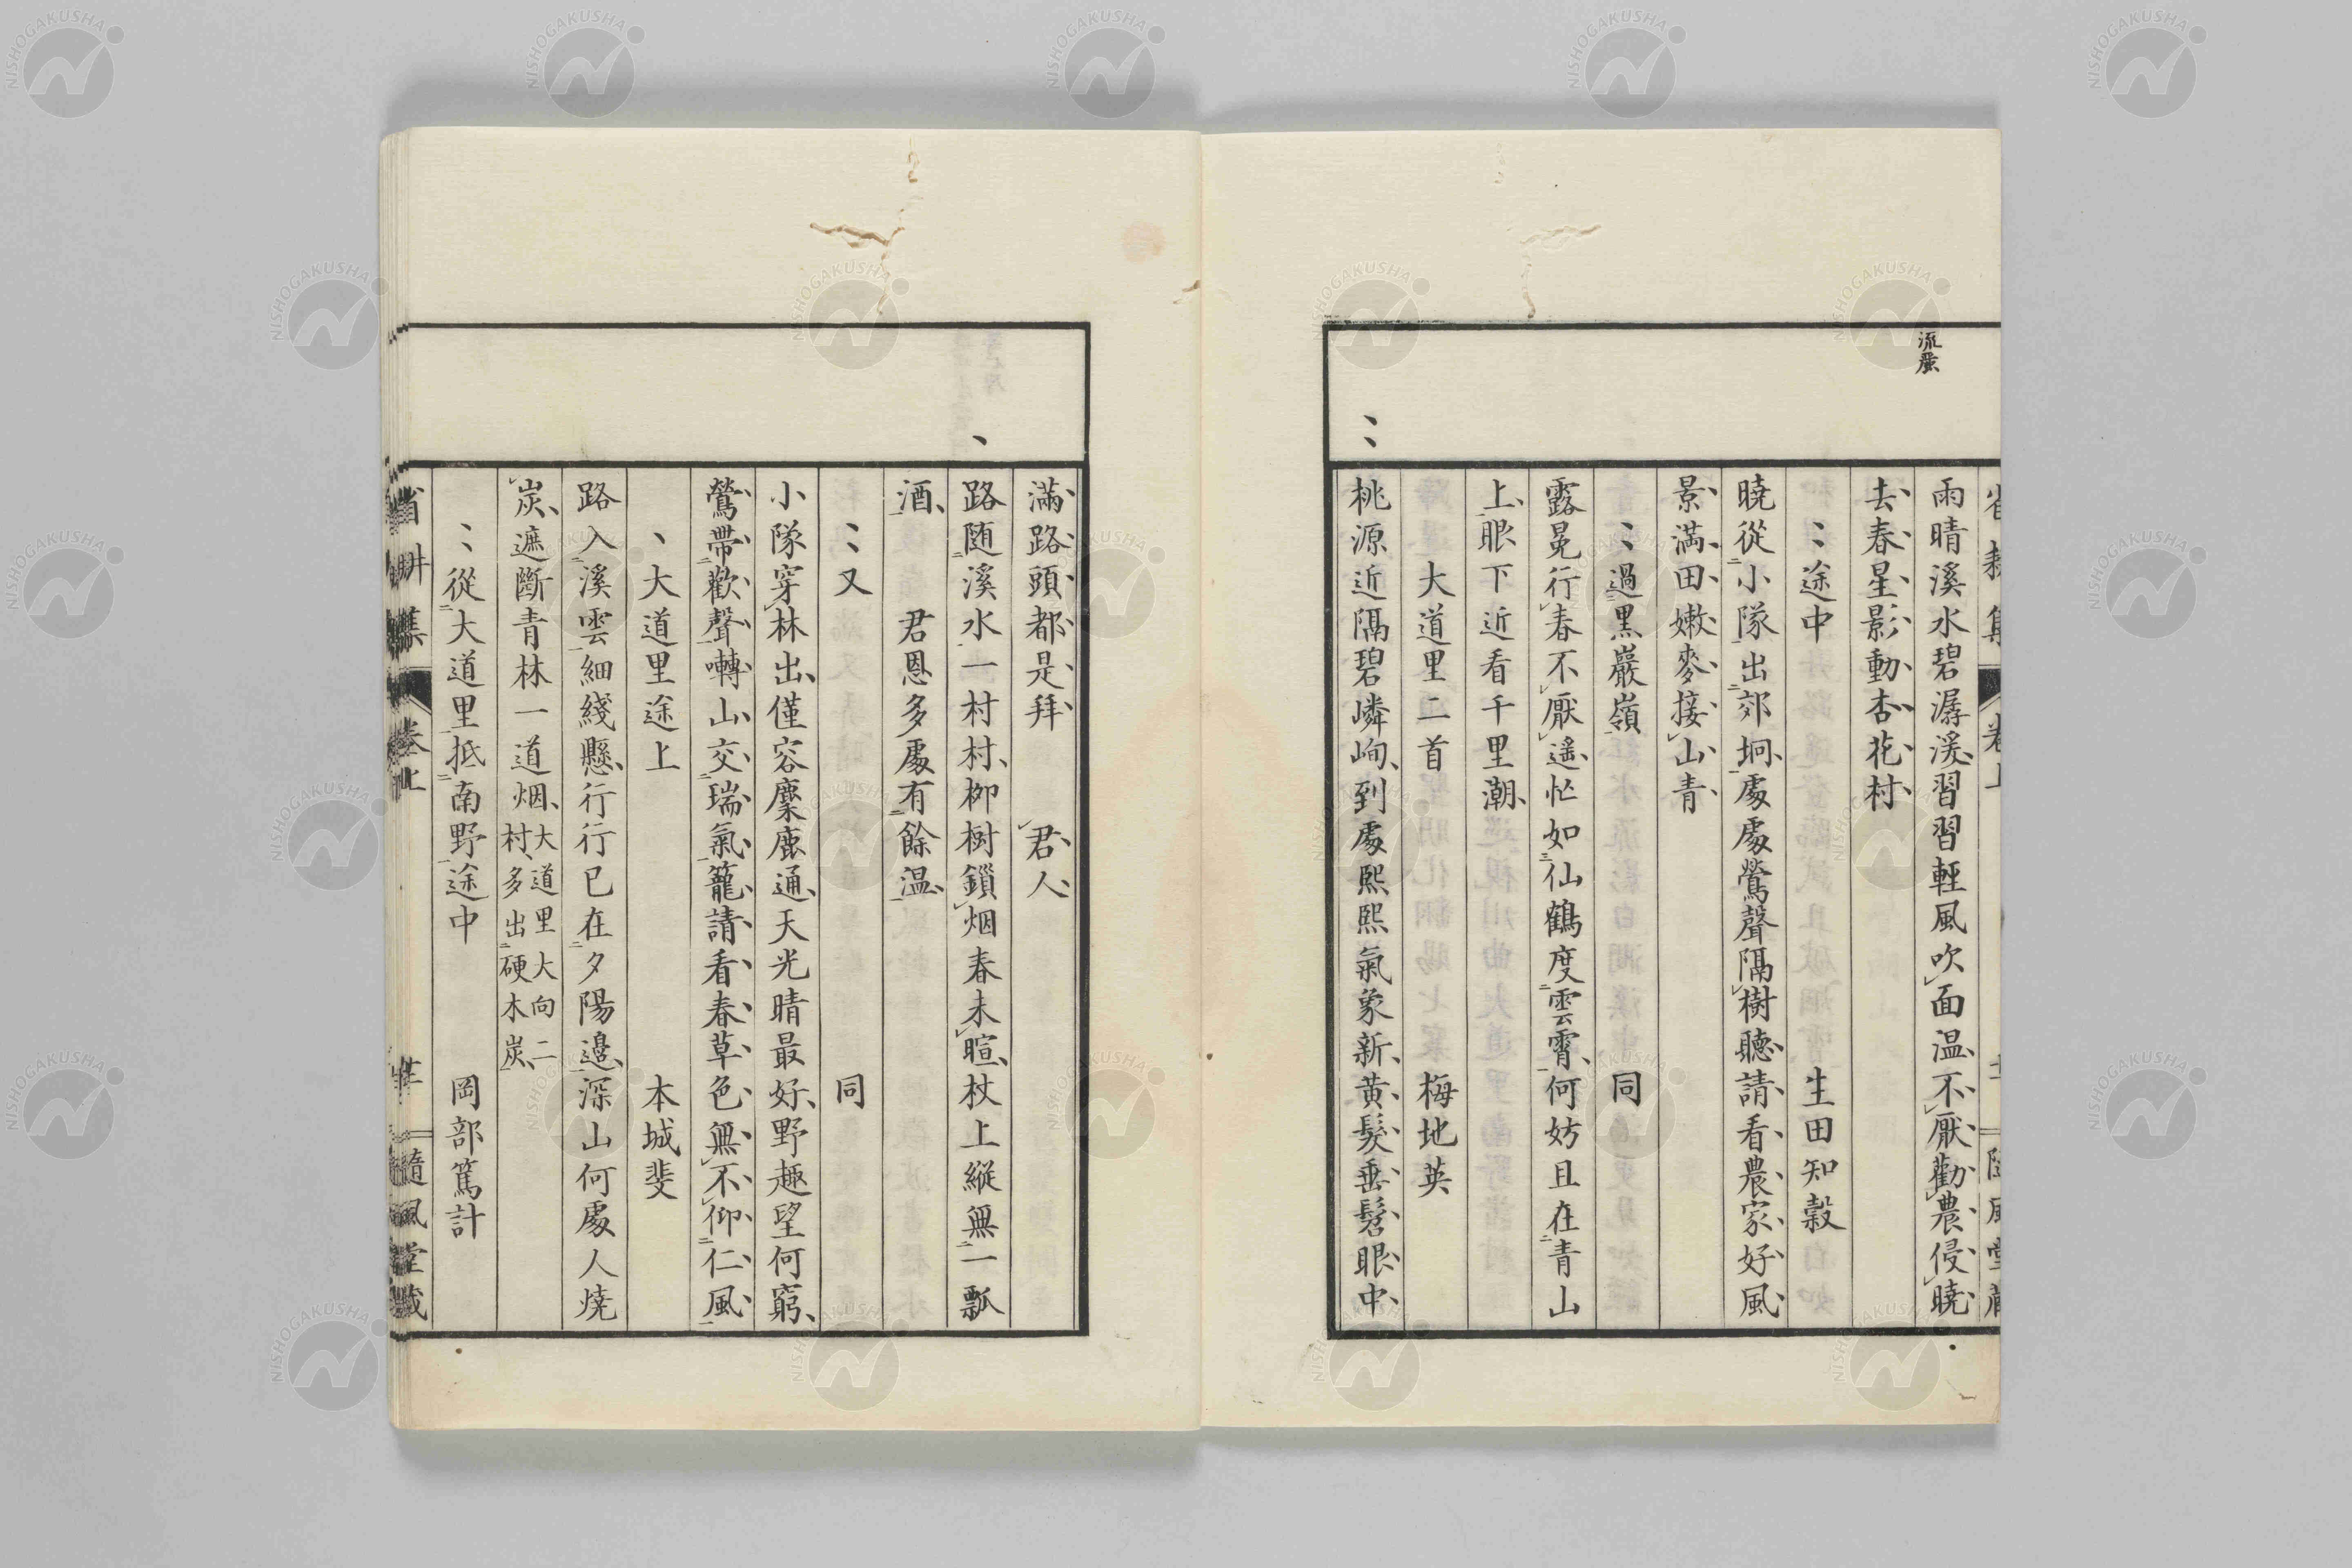 流麗
雨晴溪水碧潺湲習習輕風吹面温不厭勸農侵曉
去春星影動杏花村
途中 生田知穀
曉從小隊出郊坰處處鶯聲隔樹聽請看農家好風
景滿田嫩麥接山青
過黑巖嶺 同
露冕行春不厭遥忙如仙鶴度雲霄何妨且在青山
上眼下近看千里潮
大道里二首 梅地英
桃源近隔碧嶙峋到處熙熙氣象新黄髮垂髫眼中
滿路頭都是拜 君人
路随溪水一村村柳樹鎖烟春未暄杖上縱無一瓢
酒 君恩多處有餘温
又 同
小隊穿林出僅容麋鹿通天光晴最好野趣望何窮
鶯帶歡聲囀山交瑞氣籠請看春草色無不仰仁風
大道里途上 本城斐
路入溪雲細綫懸行行已在夕陽邉深山何處人燒
炭遮斷青林一道烟 大道里大向二
村多出硬木炭
從大道里抵南野途中 岡部篤計
省耕集 卷上 隨風堂藏